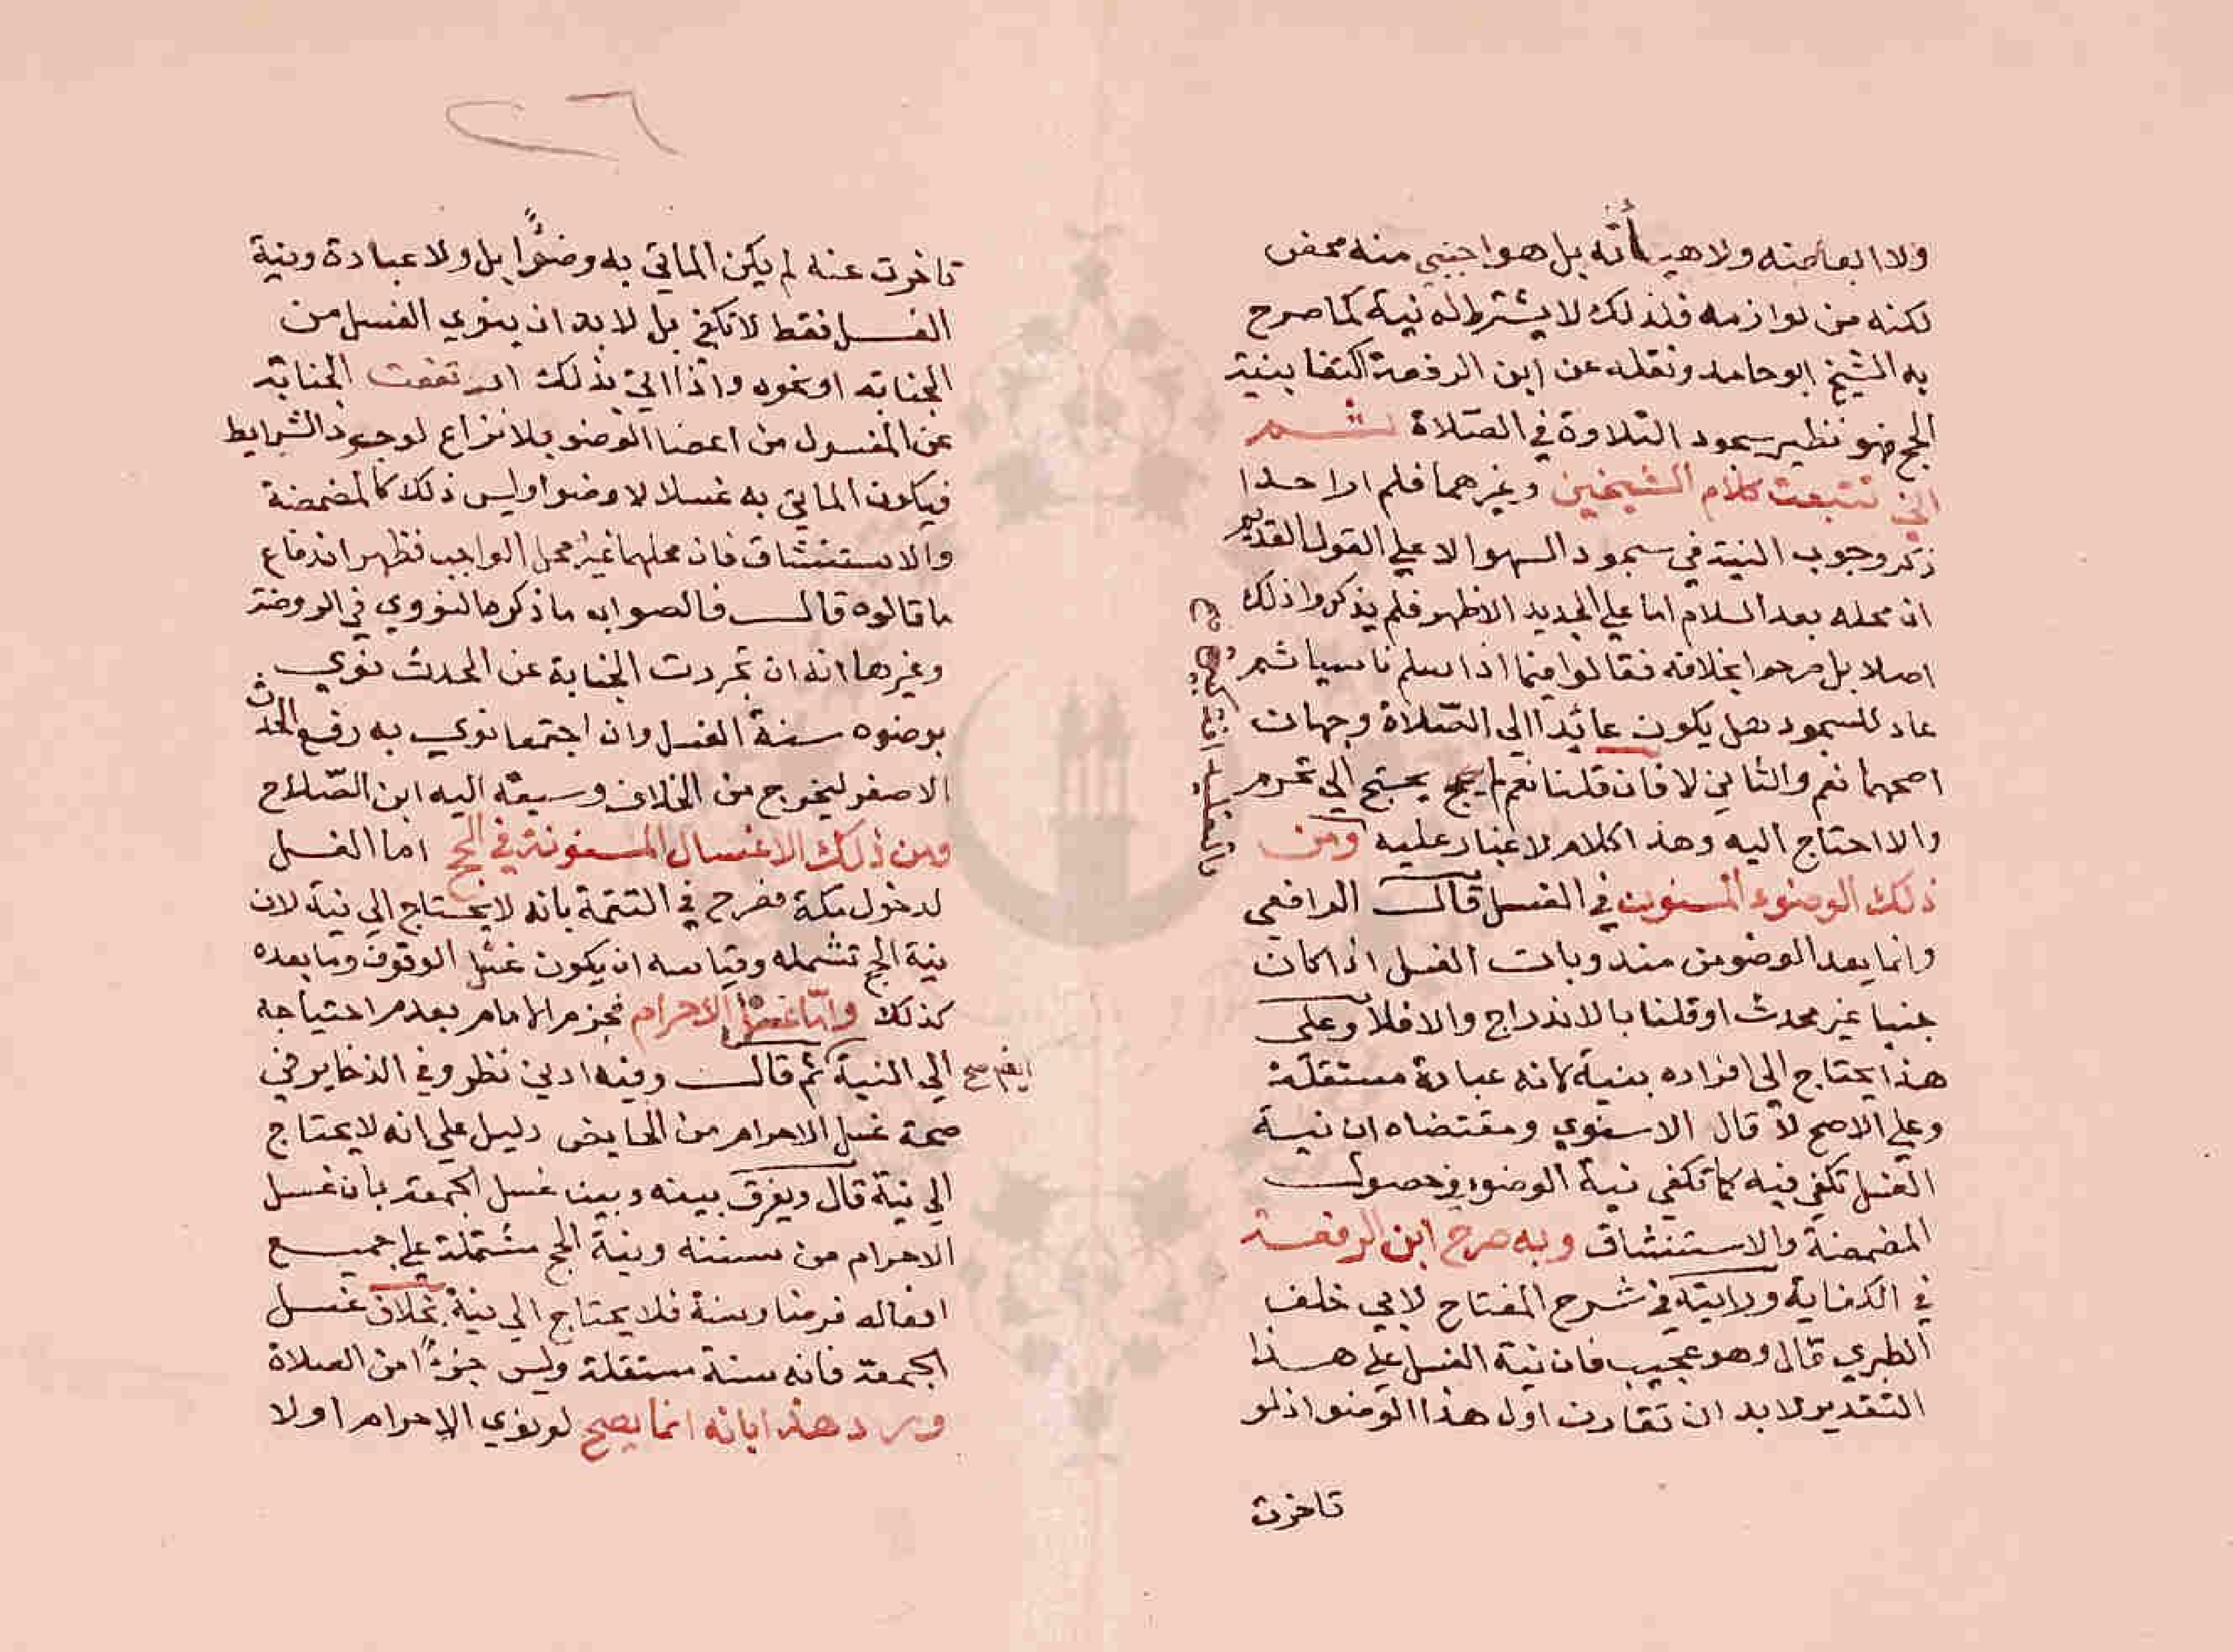 ولا ابعاضه ولا هيأته بل هو اجنبي منه محض
لكنه من لوازمه فلذلك لا يشترط له نية كما صرح
به الشيخ ابو حامد ونقله عن ابن الرفعة اكتفا بنية
الحج فهو نظير سجود التلاوة في الصلاة ثم
اني تتبعت كلام الشيخين وغيرهما فلم ار احدا
ذكر وجوب النية في سجود السهو الا علي القول القديم
ان محله بعد السلام اما علي الجديد الاظهر فلم يذكروا ذلك
اصلا بل صرحوا بخلافه فقالوا فيما اذا سلم ناسيا ثم
عاد للسجود هل يكون عائدا الي الصلاة وجهان
اصحهما نعم والثاني لا فان قلنا نعم لم يحتج الي تحرم
والا احتاج اليه وهذا كلام لا غبار عليه ومن
ذلك الوضوء المسنون في الغسل قال الرافعي
وانما يعد الوضو من مندوبات الغسل اذا كان
جنبا غير محدث او قلنا بالاندراج والا فلا وعلى
هذا يحتاج الي افراده بنية لانه عبادة مستقلة
وعلي الاصح لا قال الاسنوي ومقتضاه ان نية
الغسل تكفي فيه كما تكفي نية الوضوء في حصول
المضمضة والاستنشاق وبه صرح ابن الرفعة
في الكفاية ورايته في شرح المفتاح لابي خلف
الطبري قال وهو عجيب فان نية الغسل علي هذا
التقدير لا بد ان تقارن اول هذا الوضوء اذ لو
تاخرت
٢٦
تاخرت عنه لم يكن الماتي به وضوءًا بل ولا عبادة ونية
الغسل فقط لا تكفي بل لا بد ان ينوي الغسل من
الجنابة او نحوه واذا اتي بذلك ارتفعت الجنابة
عن المغسول من اعضا الوضو بلا نزاع لوجود الشرايط
فيكون الماتي به غسلا لا وضوا وليس ذلك كالمضمضة
والاستنشاق فان محلهما غير محل الواجب فظهر اندفاع
ما قالوه قال فالصواب ما ذكره النووي في الروضة
وغيرها انه ان تجردت الجنابة عن الحدث نوي
بوضوه سنة الغسل وان اجتمعا نوي به رفع الحدث
الاصغر ليخرج من الخلاف وسبقه اليه ابن الصلاح
ومن ذلك الاغسال المسنونة في الحج اما الغسل
لدخول مكة فصرح في التتمة بانه لا يحتاج الي نية لان
نية الحج تشمله وقياسه ان يكون غسل الوقوف وما بعده
كذلك واما غسل الاحرام فجزم الامام بعدم احتياجه
الي النية ثم قال وفيه ادني نظر وفي الذخاير في
صحة غسل الاحرام من الحايض دليل علي انه لا يحتاج
الي نية قال ويفرق بينه وبين غسل الجمعة بان غسل
الاحرام من سننه ونية الحج مشتملة علي جميع
افعاله فرضا وسنة فلا يحتاج الي نية بخلاف غسل
الجمعة فانه سنة مستقلة وليس جزءًا من الصلاة
ورد هذا بانه انما يصح لو نوي الاحرام اولا